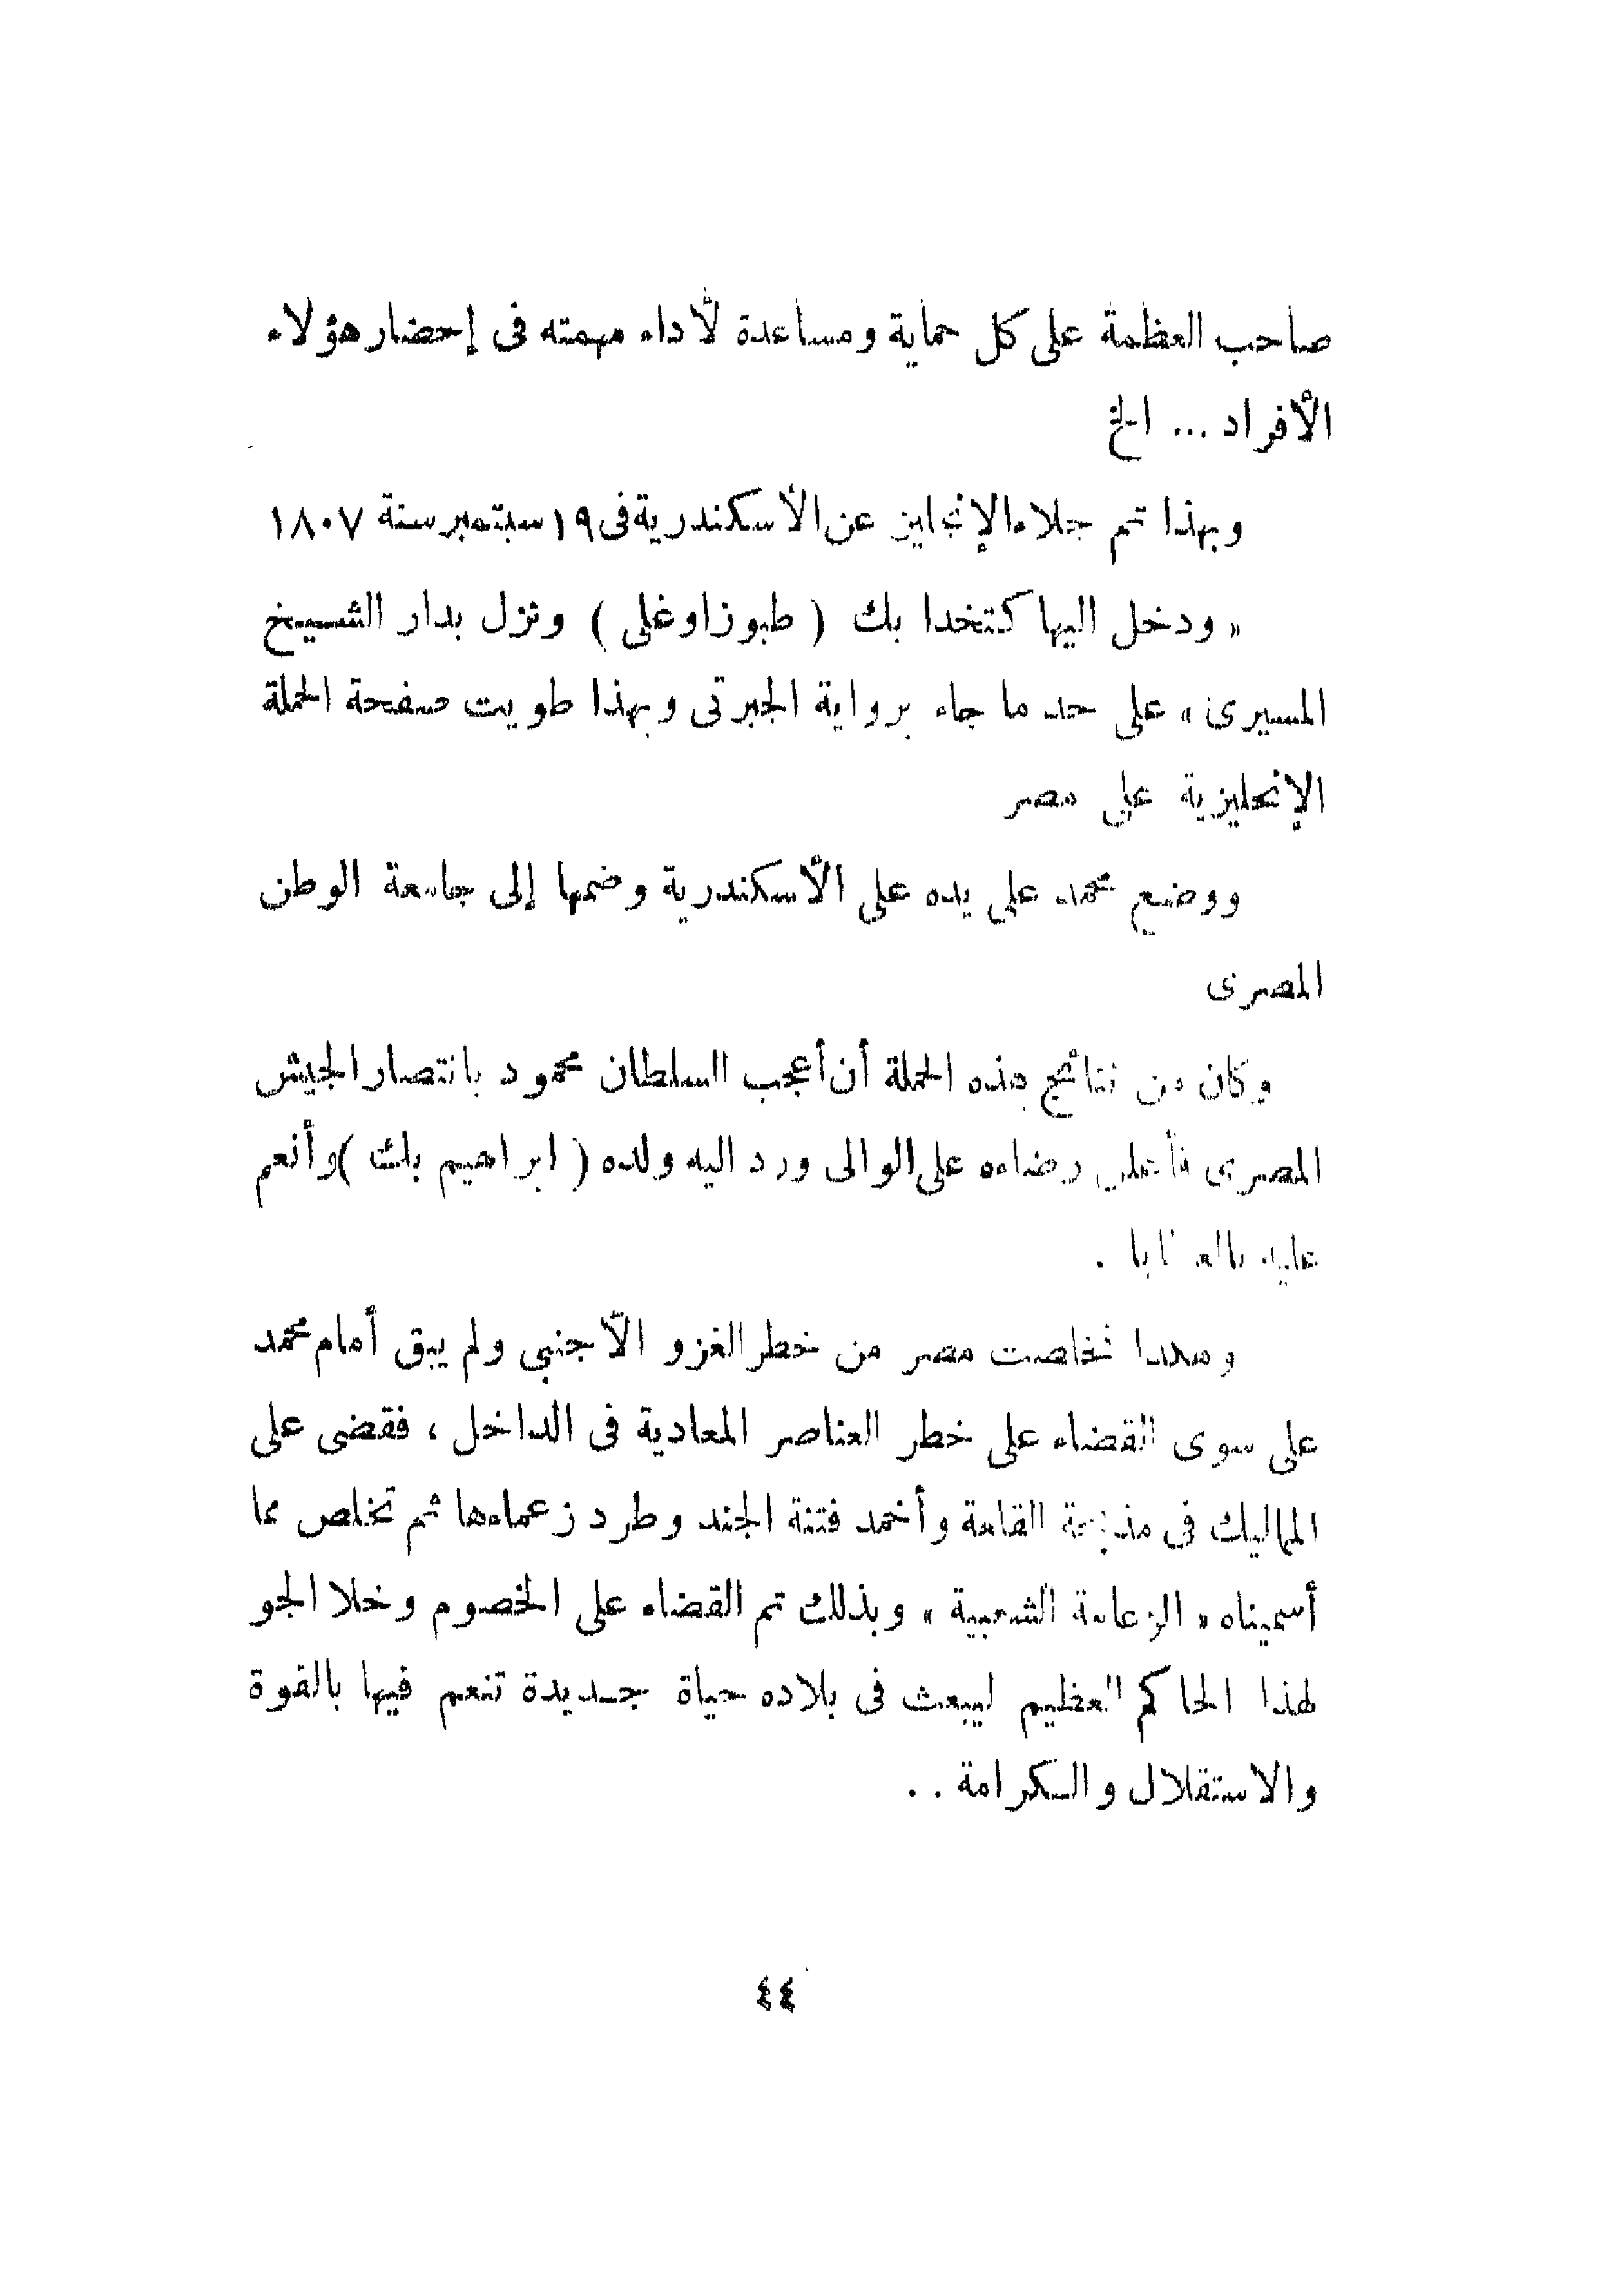 صاحب العظمة على كل حماية ومساعدة لأداء مهمته فى إحضار هؤلاء
الأفراد ... الخ
وبهذا تم جلاء الإنجليز عن الأسكندرية فى ١٩ سبتمبر سنة ١٨٠٧
« ودخل اليها كتخدا بك ( طبوزاوغلى ) ونزل بدار الشيخ
المسيرى » على حد ما جاء برواية الجبرتى وبهذا طويت صفحة الحملة
الإنجليزية على مصر
ووضع محمد على يده على الأسكندرية وضمها إلى جامعة الوطن
المصرى
وكان من نتائج هذه الحملة أن أعجب السلطان محمود بانتصار الجيش
المصرى فأعلن رضاءه على الوالى ورد اليه ولده ( ابراهيم بك ) وأنعم
عليه .
وهكذا تخلصت مصر من خطر الغزو الأجنبى ولم يبق أمام محمد
على سوى القضاء على خطر العناصر المعادية فى الداخل ، فقضى على
المماليك فى مذبحة القلعة وأخمد فتنة الجند وطرد زعماءها ثم تخلص مما
أسميناه « الزعامة الشعبية » وبذلك تم القضاء على الخصوم وخلا الجو
لهذا الحاكم العظيم ليبعث فى بلاده حياة جديدة تنعم فيها بالقوة
والاستقلال والكرامة . .
٤٤